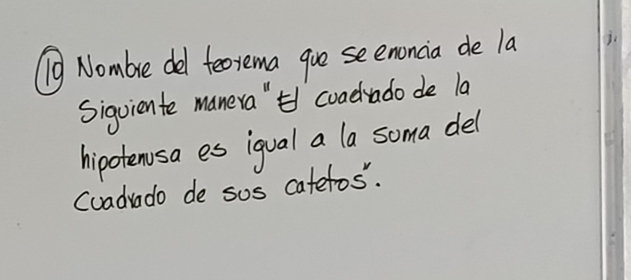 10 Nombre del teorema que se enuncia de la
siguiente manera "El cuadrado de la
hipotenusa es igual a la suma del
cuadrado de sus catetos".